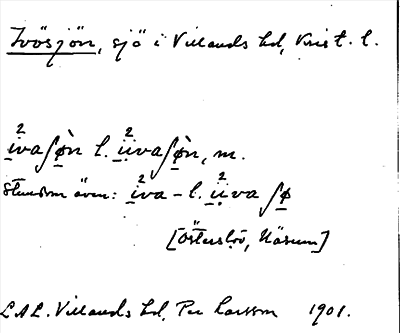 Ivösjön, sjö i Villands hd, Krist. l.
i²vaʃø̀n l. ü²vaʃø̀n, m.
Stundom även: i²va- l. ü²va ʃø
[Österslöv, Näsum]
LAL. Villands hd, Per Larsson 1901.